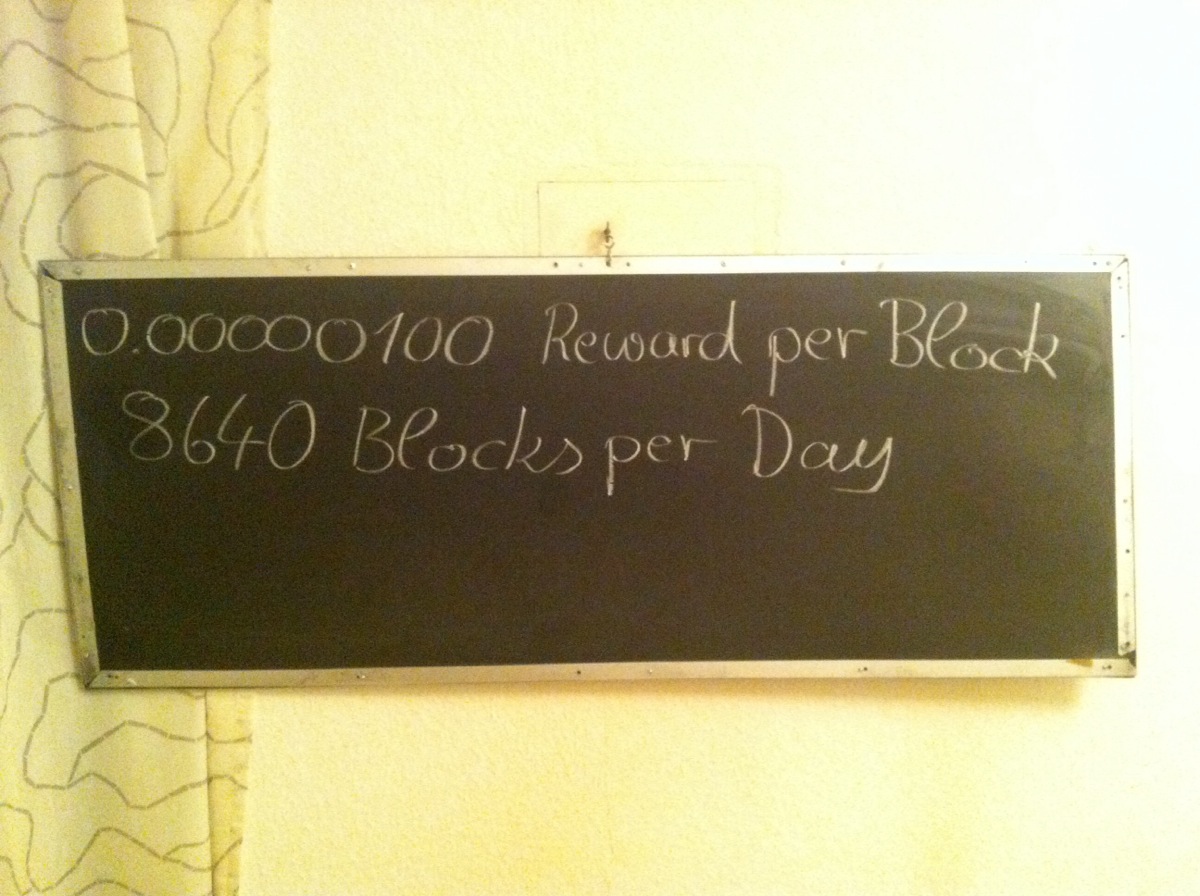 0.00000100 Reward per Block
8640 Blocks per Day